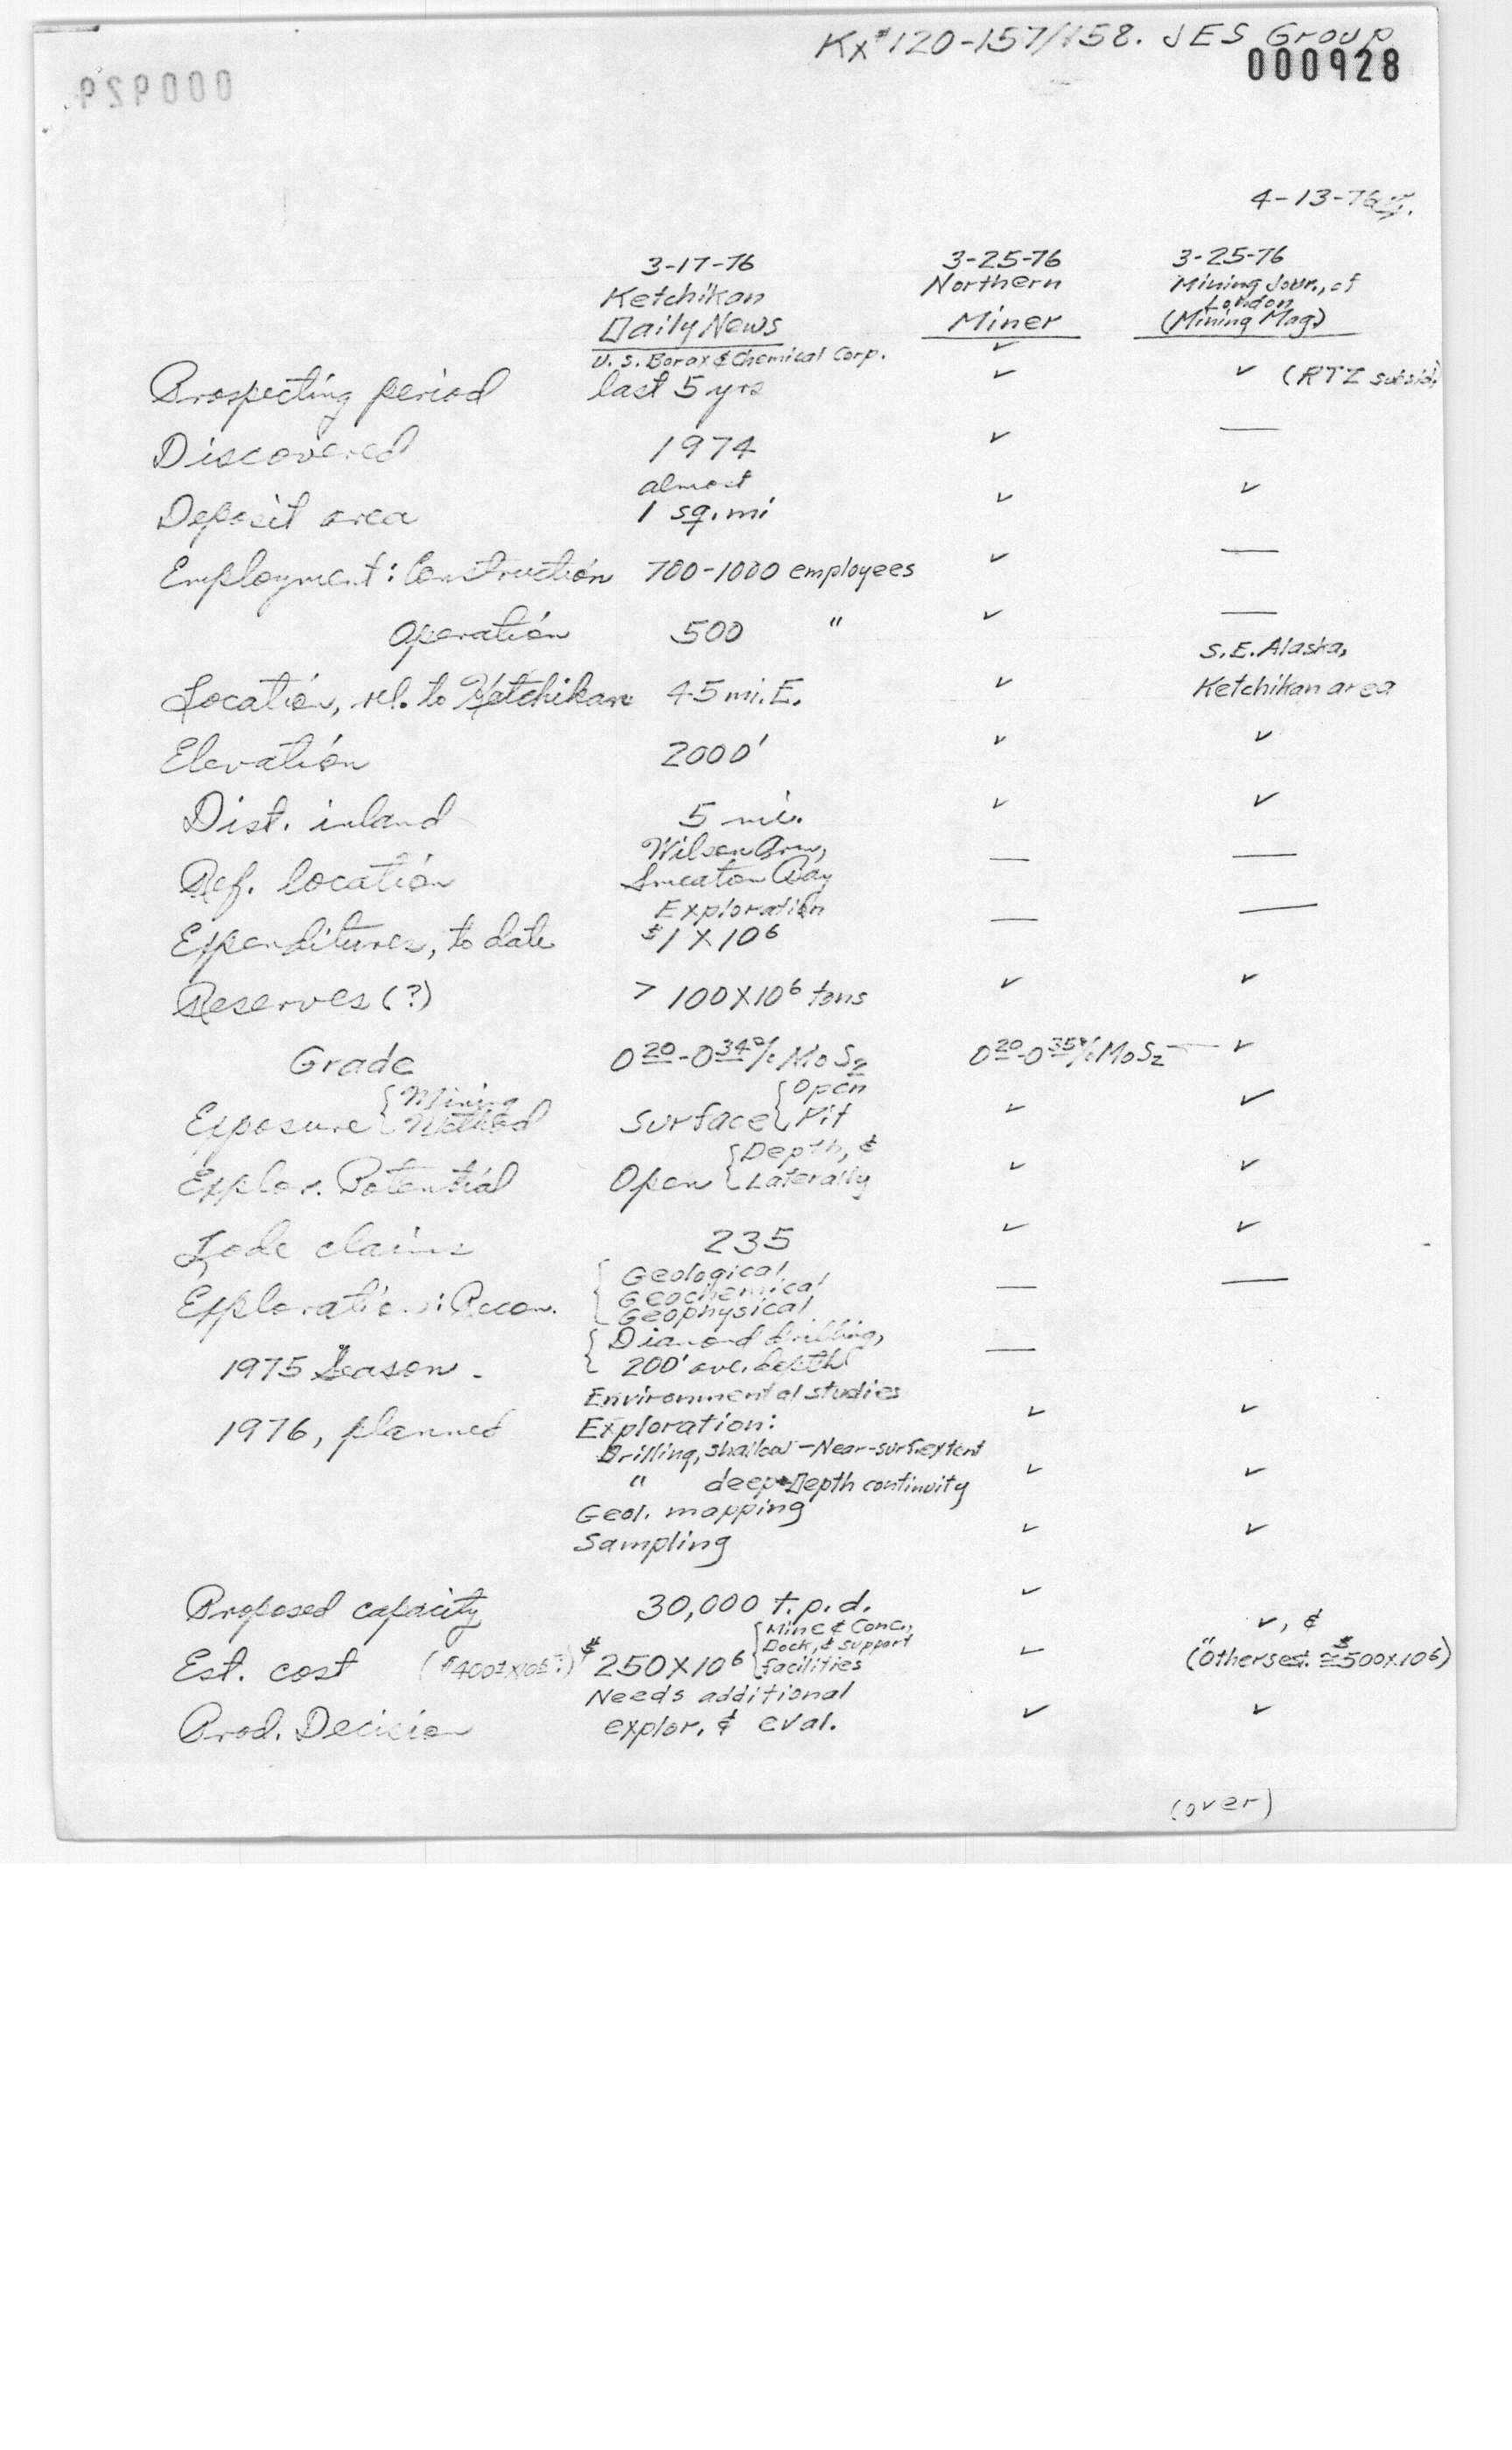 Kx#120-157/158. JES Group
000928
000929
4-13-76
3-17-76 3-25-76 3-25-76
Ketchikan Northern Mining Jour., of
London
Daily News Miner (Mining Mag.)
U. S. Borax & Chemical Corp. ✓
Prospecting period last 5 yrs ✓ ✓ (RTZ subsid.)
Discovered 1974 ✓ —
almost
Deposit area 1 sq. mi ✓ ✓
Employment: Construction 700-1000 employees ✓ —
Operation 500 " ✓ —
S.E. Alaska,
Location, rel. to Ketchikan 45 mi. E. ✓ Ketchikan area
Elevation 2000' ✓ ✓
Dist. inland 5 mi. ✓ ✓
Wilson Arm,
Ref. location Smeaton Bay — —
Exploration
Expenditures, to date $1 X 10⁶ — —
Reserves (?) > 100X10⁶ tons ✓ ✓
Grade 0²⁰-0³⁴% MoS₂ 0²⁰-0³⁵% MoS₂ — ✓
Exposure { Mining Method Surface { Open Pit ✓ ✓
Explor. Potential Open { Depth, & Laterally ✓ ✓
Lode claims 235 ✓ ✓
{ Geological
Exploration: Recon. Geochemical — —
Geophysical
{ Diamond drilling,
1975 Season - 200' ave. depth —
Environmental studies
1976, planned Exploration: ✓ ✓
Drilling, shallow - Near-surf. extent
" deep - Depth continuity ✓ ✓
Geol. mapping
Sampling ✓ ✓
Proposed capacity 30,000 t.p.d. ✓
{ Mine & Conc., ✓, &
Dock, & support
Est. cost ($400±X10⁶?) $250X10⁶ facilities ✓ ("Others est. ≅$500X10⁶)
Needs additional
Prod. Decision explor. & eval. ✓ ✓
(over)